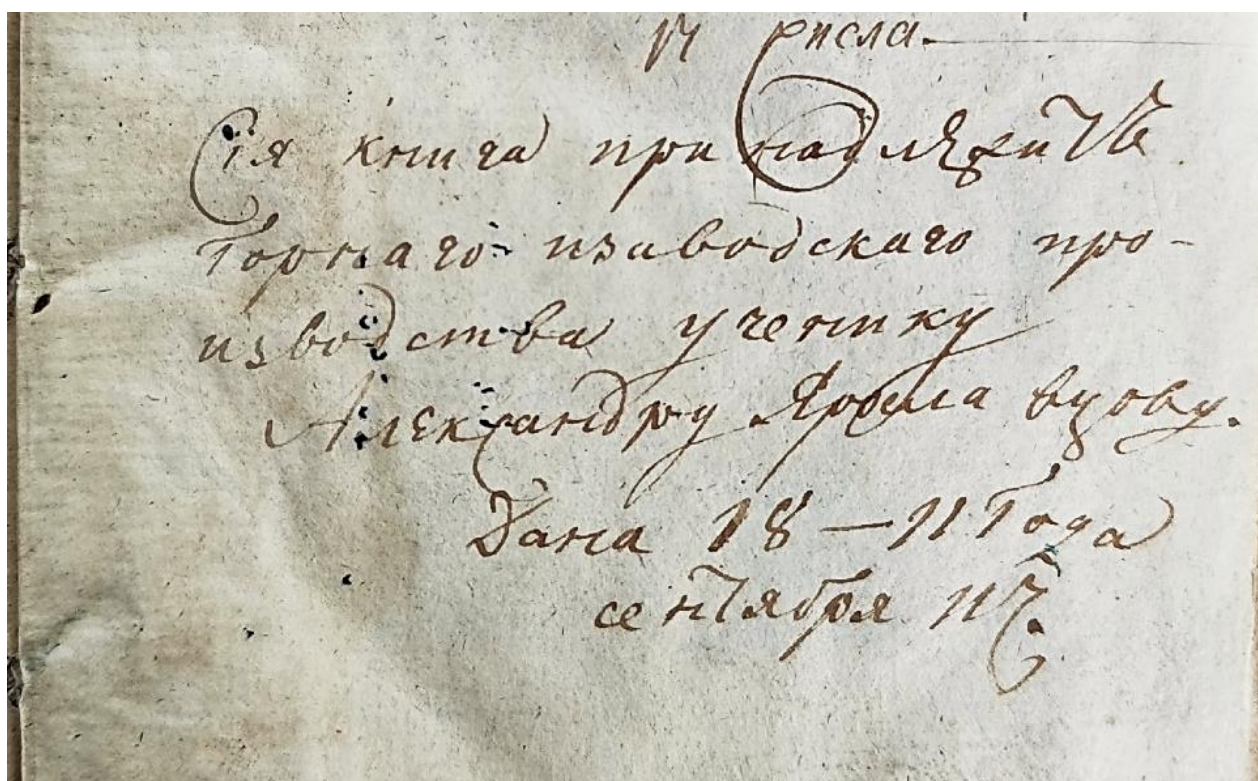 11 числа.
Сія книга принадлѣжитъ
Горнаго изаводскаго про-
изводства ученику
Александру Ярославцову.
Дана 18—11 Года
сентября 11 ч.